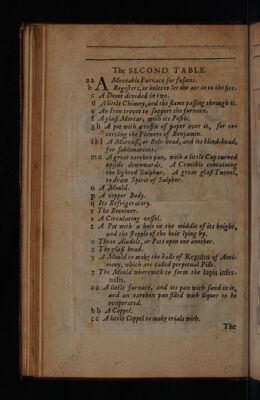 The SECOND TABLE.
a a A Moveable Furnace for fusions.
b Registers, or holes to let the aer in to the fire.
c A Dome divided in two.
d A little Chimny, and the flame passing through it.
e An Iron trevet to support the furnace.
f A glass Mortar, with its Pestle.
g h A pot with a coffin of paper over it, for re-
ceiving the Flowers of Benjamin.
i k l A Matrass, or Bolt-head, and its blind-head,
for sublimations.
m n A great earthen pan, with a little Cup turned
upside downwards. A Crucible containing
the lighted Sulphur. A great glass Tunnel,
to draw Spirit of Sulphur.
o A Mould.
p A copper Body.
q Its Refrigeratory.
r The Receiver.
s A Circulating vessel.
t A Pot with a hole in the middle of its height,
and the stopple of the hole lying by.
u Three Aludels, or Pots upon one another.
x The glass head.
y A Mould to make the balls of Regulus of Anti-
mony, which are called perpetual Pills.
z The Mould wherewith to form the lapis infer-
nalis.
a a A little furnace, and its pan with sand in it,
and an earthen pan filled with liquor to be
evaporated.
b b A Coppel.
c c A little Coppel to make trials with.
The